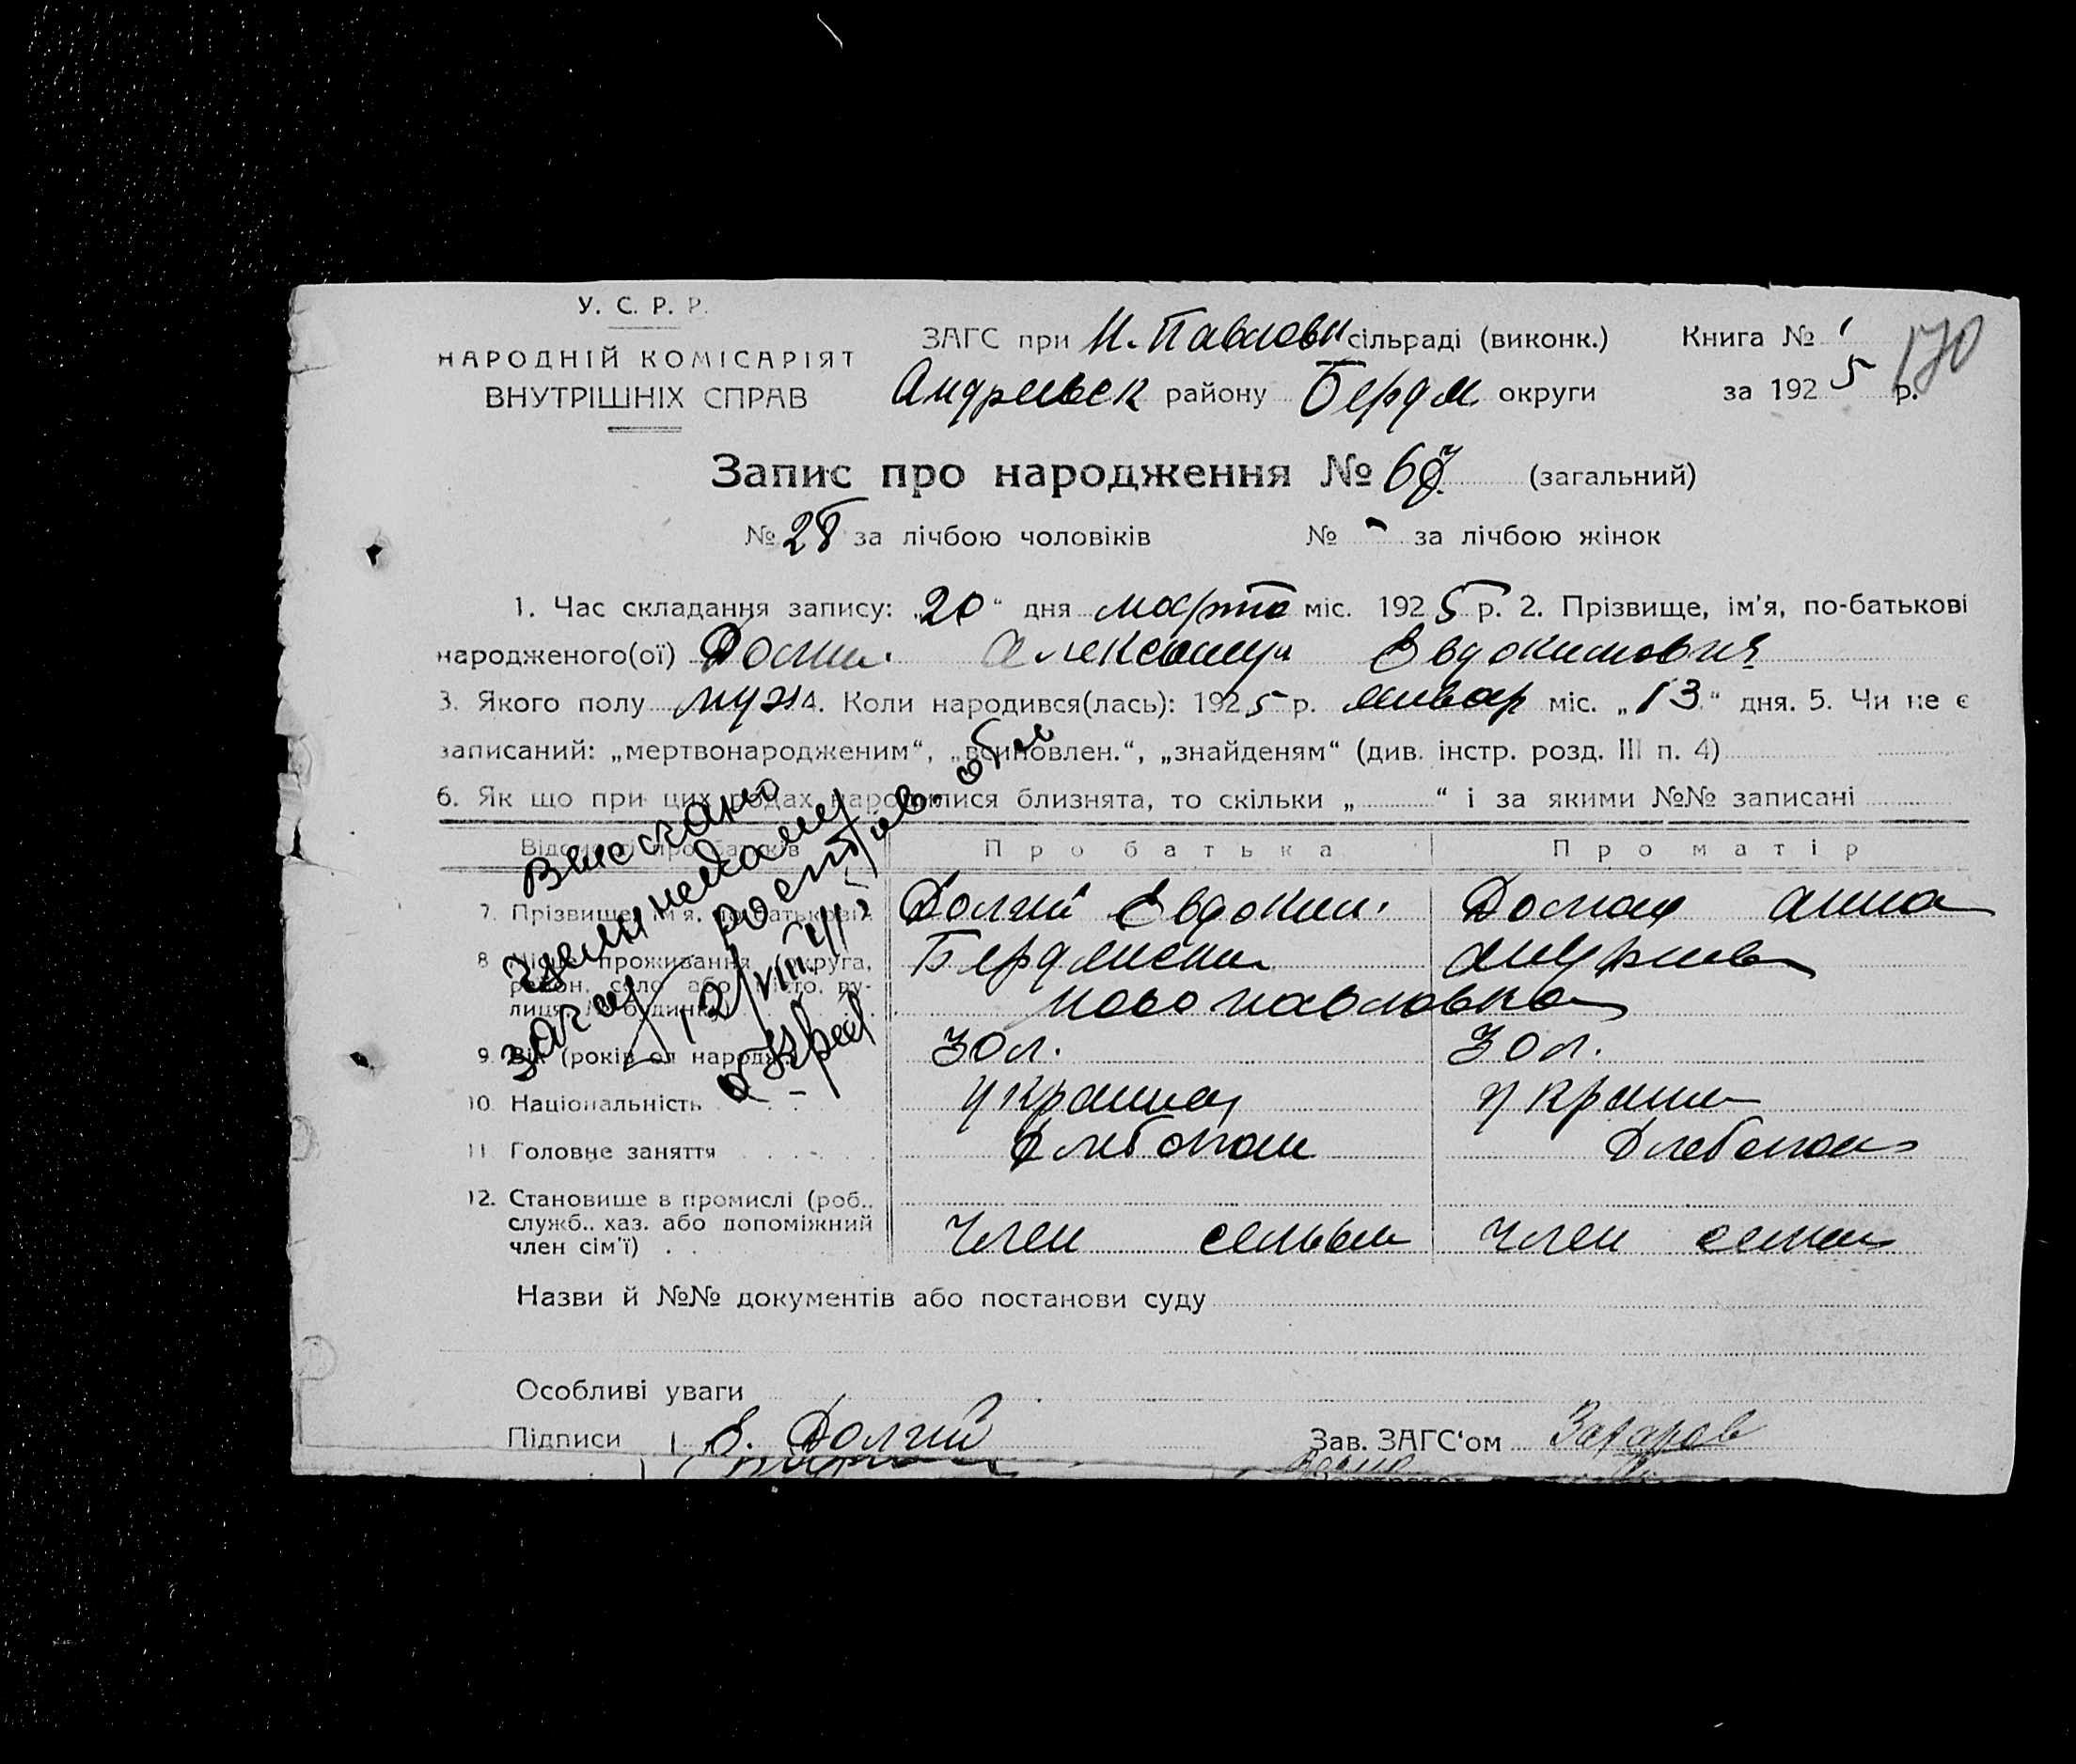 У. С. Р. Р.
НАРОДНІЙ КОМІСАРІЯТ
ВНУТРІШНІХ СПРАВ
ЗАГС при Н. Павловк сільраді (виконк.) Книга № 1
170
Андреевск району Бердя. округи за 1925 р.
Запис про народження № 67 (загальний)
№ 28 за лічбою чоловіків № - за лічбою жінок
1. Час складання запису: „20“ дня марта міс. 1925 р. 2. Прізвище, ім’я, по-батькові
народженого(ої) Александр Евдокимович
3. Якого полу муж 4. Коли народився(лась): 1925 р. январ міс. „13“ дня. 5. Чи не є
записаний: „мертвонародженим“, „всиновлен.“, „знайденям“ (див. інстр. розд. III п. 4)
6. Як що при цих родах народилися близнята, то скільки „ “ і за якими №№ записані
Відомості про батьків Про батька Про матір
7. Прізвище, ім’я, по-батькові Долгий Евдоким. Долгая Анна
8. Місце проживання (округа, Бердянски Андреев
район, село або місто, ву-
лиця, № будинку) Новопавловка
9. Вік (років од народж.) 30 л. 30 л.
10. Національність украин
11. Головне заняття Хлебопаш Хлебопаш
12. Становище в промислі (роб.,
служб., хаз. або допоміжний
член сім’ї) Член семьи Член семи
Назви й №№ документів або постанови суду
Особливі уваги
Підписи 1 Е. Долгий Зав. ЗАГС‘ом Захаров